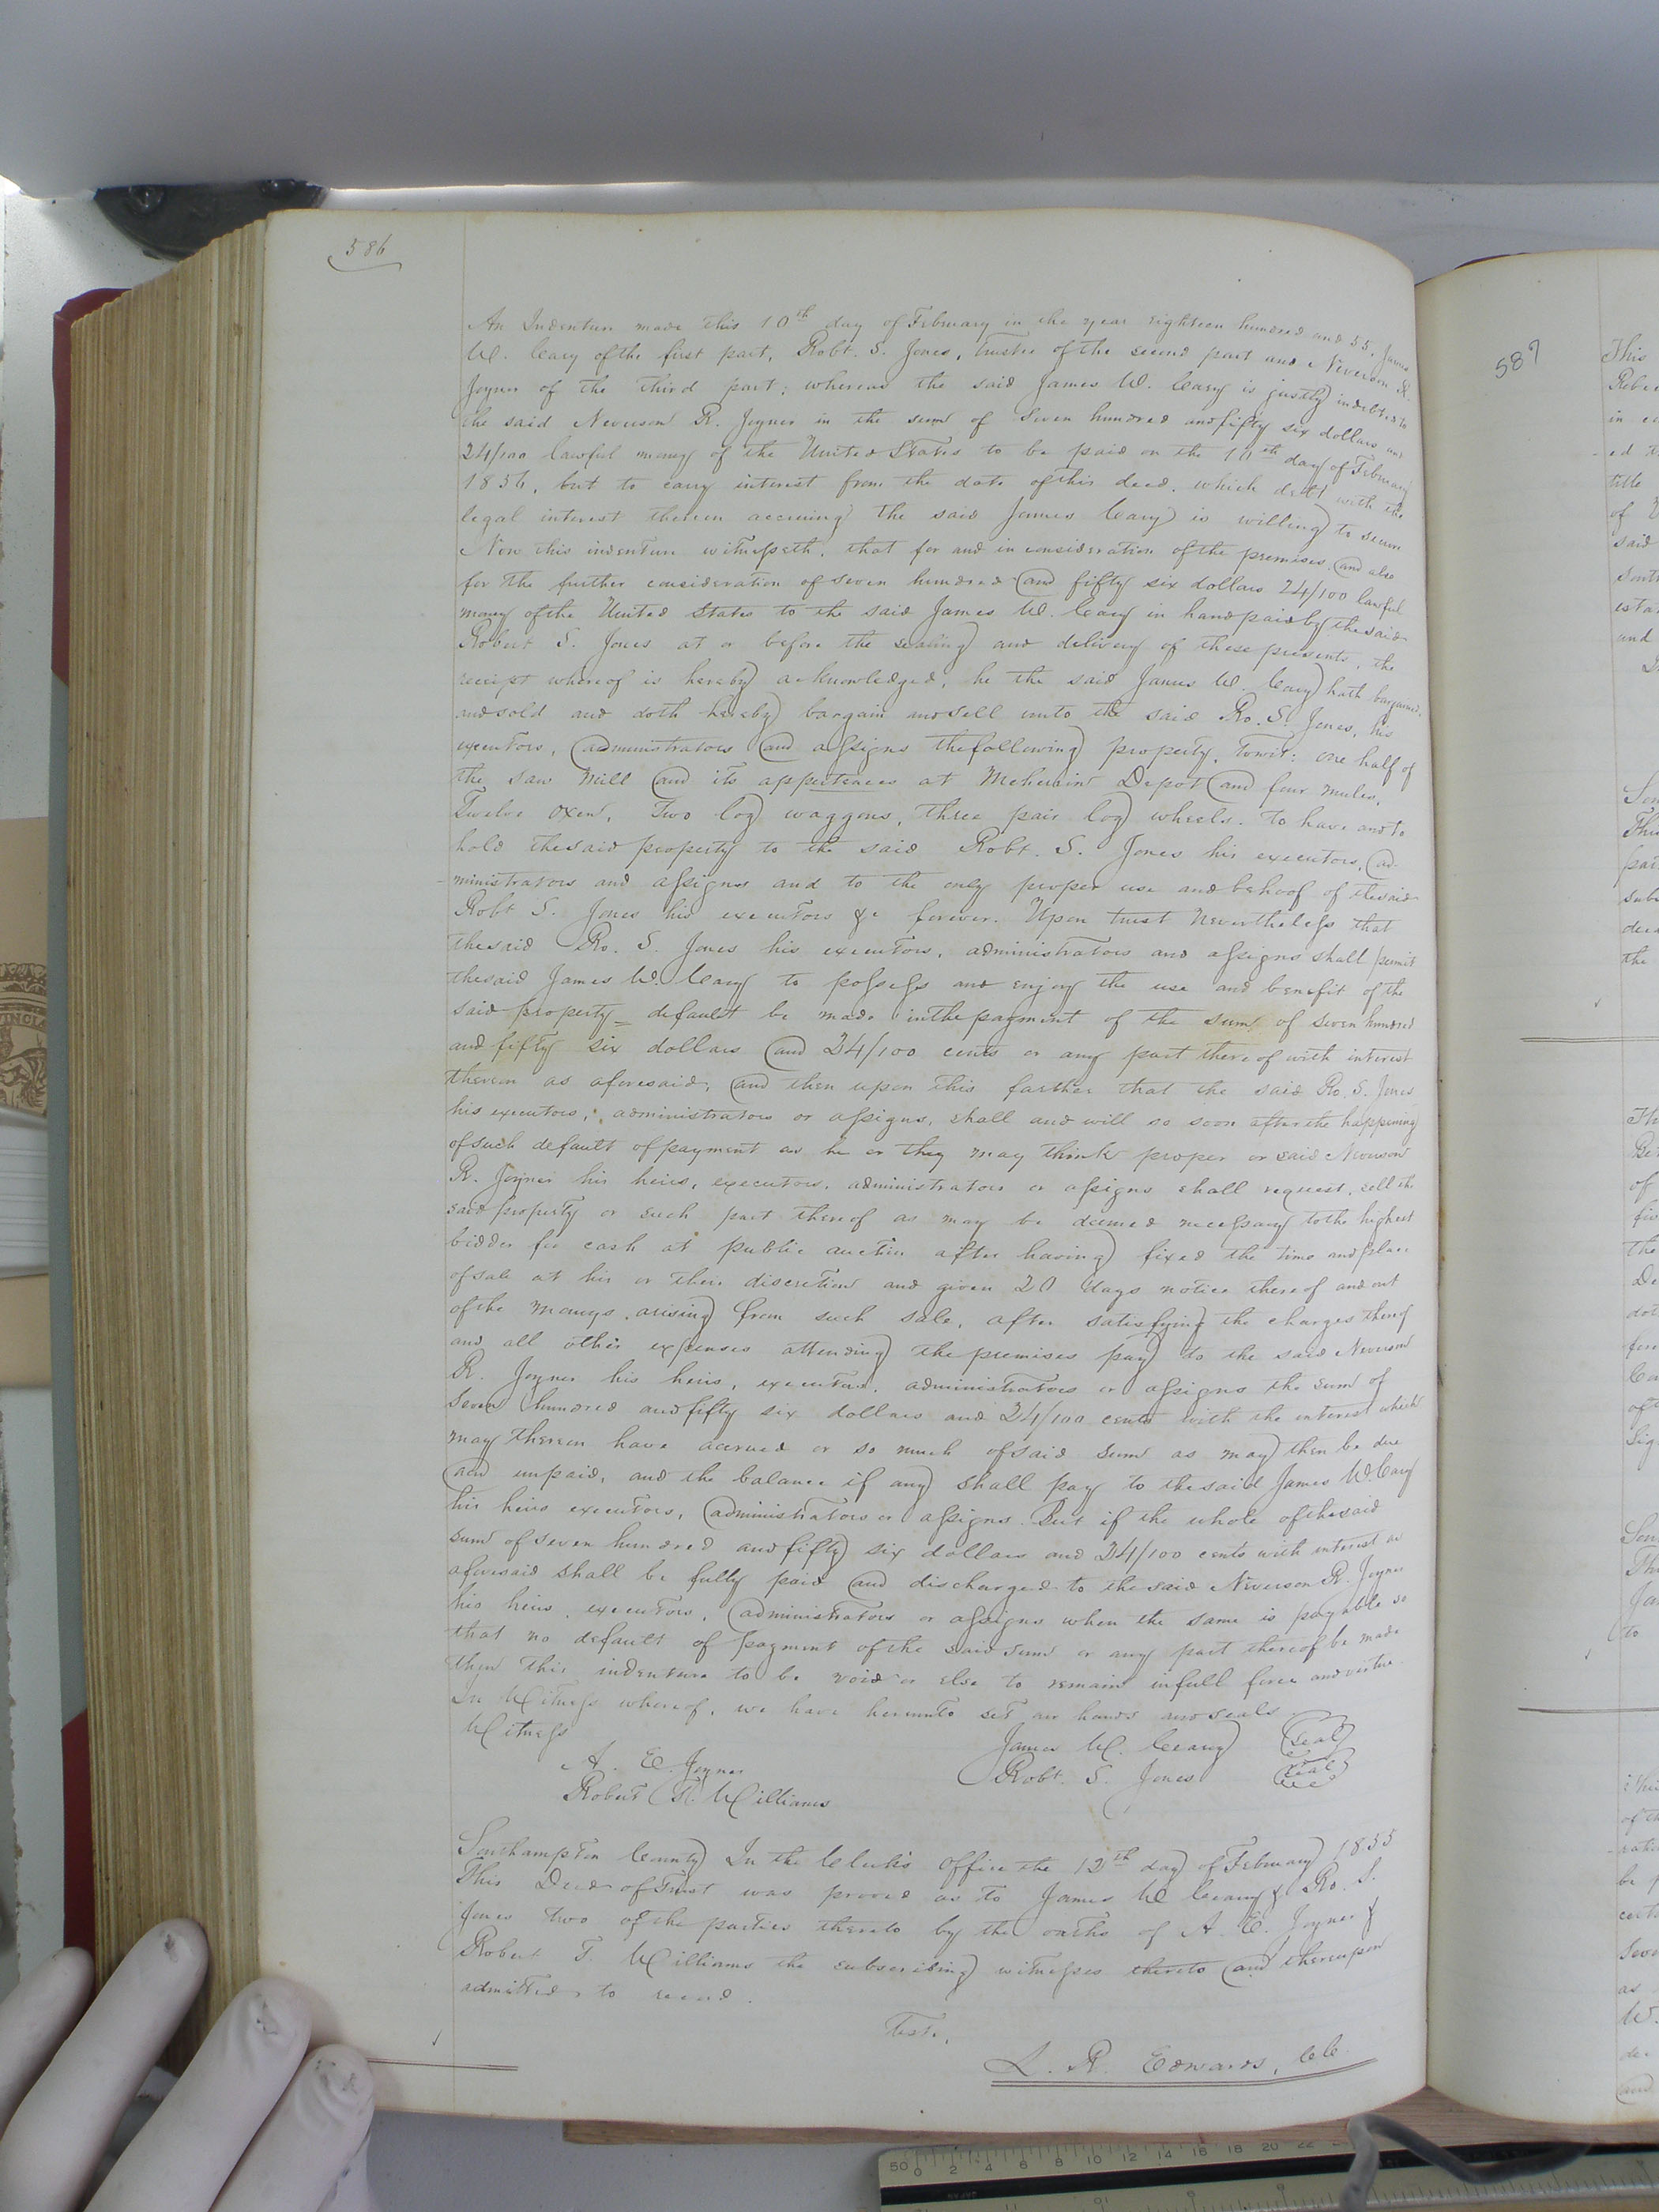 586
An Indenture made this 10th day of February in the year eighteen hundred and 55, James
W. Cary of the first part, Robt. S. Jones, trustee of the second part and Neverson R.
Joyner of the third part; whereas the said James W. Cary is justly indebted to
the said Neverson R. Joyner in the sum of Seven hundred and fifty six dollars and
24/100 lawful money of the United States to be paid on the 10th day of February
1856, but to carry interest from the date of this deed, which debt with the
legal interest thereon accruing the said James Cary is willing to secure
Now this indenture witnesseth, that for and in consideration of the premises, and also
for the further consideration of seven hundred and fifty six dollars 24/100 lawful
money of the United States to the said James W. Cary in hand paid by the said
Robert S. Jones at or before the sealing and delivery of these presents, the
receipt whereof is hereby acknowledged, he the said James W. Cary hath bargained
and sold and doth hereby bargain and sell unto the said Ro. S. Jones, his
executors, administrators and assigns the following property, towit: one half of
the saw mill and its appertences at Meherrin Depot and four mules,
Twelve oxen, Two log waggons, three pair log wheels. To have and to
hold the said property to the said Robt. S. Jones his executors, ad-
-ministrators and assigns and to the only proper use and behoof of the said
Robt S. Jones his executors &c forever. Upon trust nevertheless that
the said Ro. S. Jones his executors, administrators and assigns shall permit
the said James W. Cary to possess and enjoy the use and benefit of the
said property = default be made in the payment of the sum of seven hundred
and fifty six dollars and 24/100 cents or any part thereof with interest
thereon as aforesaid, and then upon this farther that the said Ro. S. Jones
his executors, administrators or assigns, shall and will so soon after the happening
of such default of payment as he or they may think proper or said Neverson
R. Joyner his heirs, executors, administrators or assigns shall request, sell the
said property or such part thereof as may be deemed necessary to the highest
bidder for cash at public auction after having fixed the time and place
of sale at his or their discretion and given 20 days notice thereof and out
of the moneys arising from such sale, after satisfying the charges thereof
and all other expenses attending the premises pay to the said Neverson
R. Joyner his heirs, executors, administrators or assigns the sum of
Seven hundred and fifty six dollars and 24/100 cents with the interest which
may thereon have accrued or so much of said sum as may then be due
and unpaid, and the balance if any shall pay to the said James W. Cary
his heirs executors, administrators or assigns. But if the whole of the said
sum of seven hundred and fifty six dollars and 24/100 cents with interest as
aforesaid shall be fully paid and discharged to the said Neverson R. Joyner
his heirs, executors, administrators or assigns when the same is payable so
that no default of payment of the said sum or any part thereof be made
then this indenture to be void or else to remain in full force and virtue.
In Witness whereof, we have hereunto set our hands and seals.
Witness
James W. Ceary Seal
A. E. Joyner
Robt. S. Jones Seal
Robert T. Williams
Southampton County In the Clerk's office the 12th day of February 1855
This Deed of Trust was proved as to James W Ceary & Ro. S.
Jones two of the parties thereto by the oaths of A. E. Joyner &
Robert T. Williams the subscribing witnesses thereto and thereupon
admitted to record.
Teste,
L. R. Edwards, CC.
587
This
in
title
said
and
the